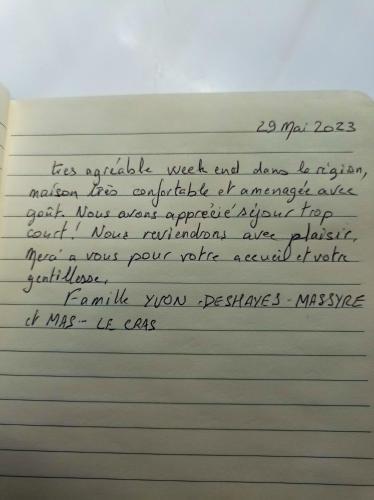 29 Mai 2023
très agréable week end dans la région,
maison très confortable et amenagée avec
goût. Nous avons apprécié séjour trop
court ! Nous reviendrons avec plaisir.
Merci a vous pour votre accueil et votre
gentillesse.
Famille YVON - DESHAYES - MASSYRE
et MAS - LE CRAS